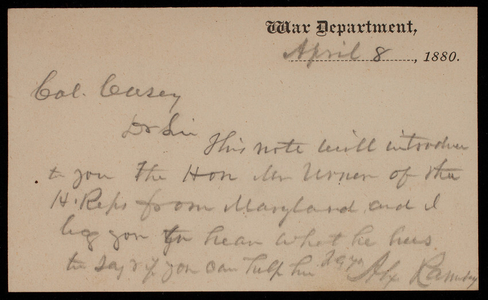 War Department,
April 8, 1880.
Col. Casey
Dr Sir
This note will introduce
to you the Hon Mr Urner of the
H. Reps from Maryland and I
beg you to hear what he has
to say & if you can help him
Alx Ramsey